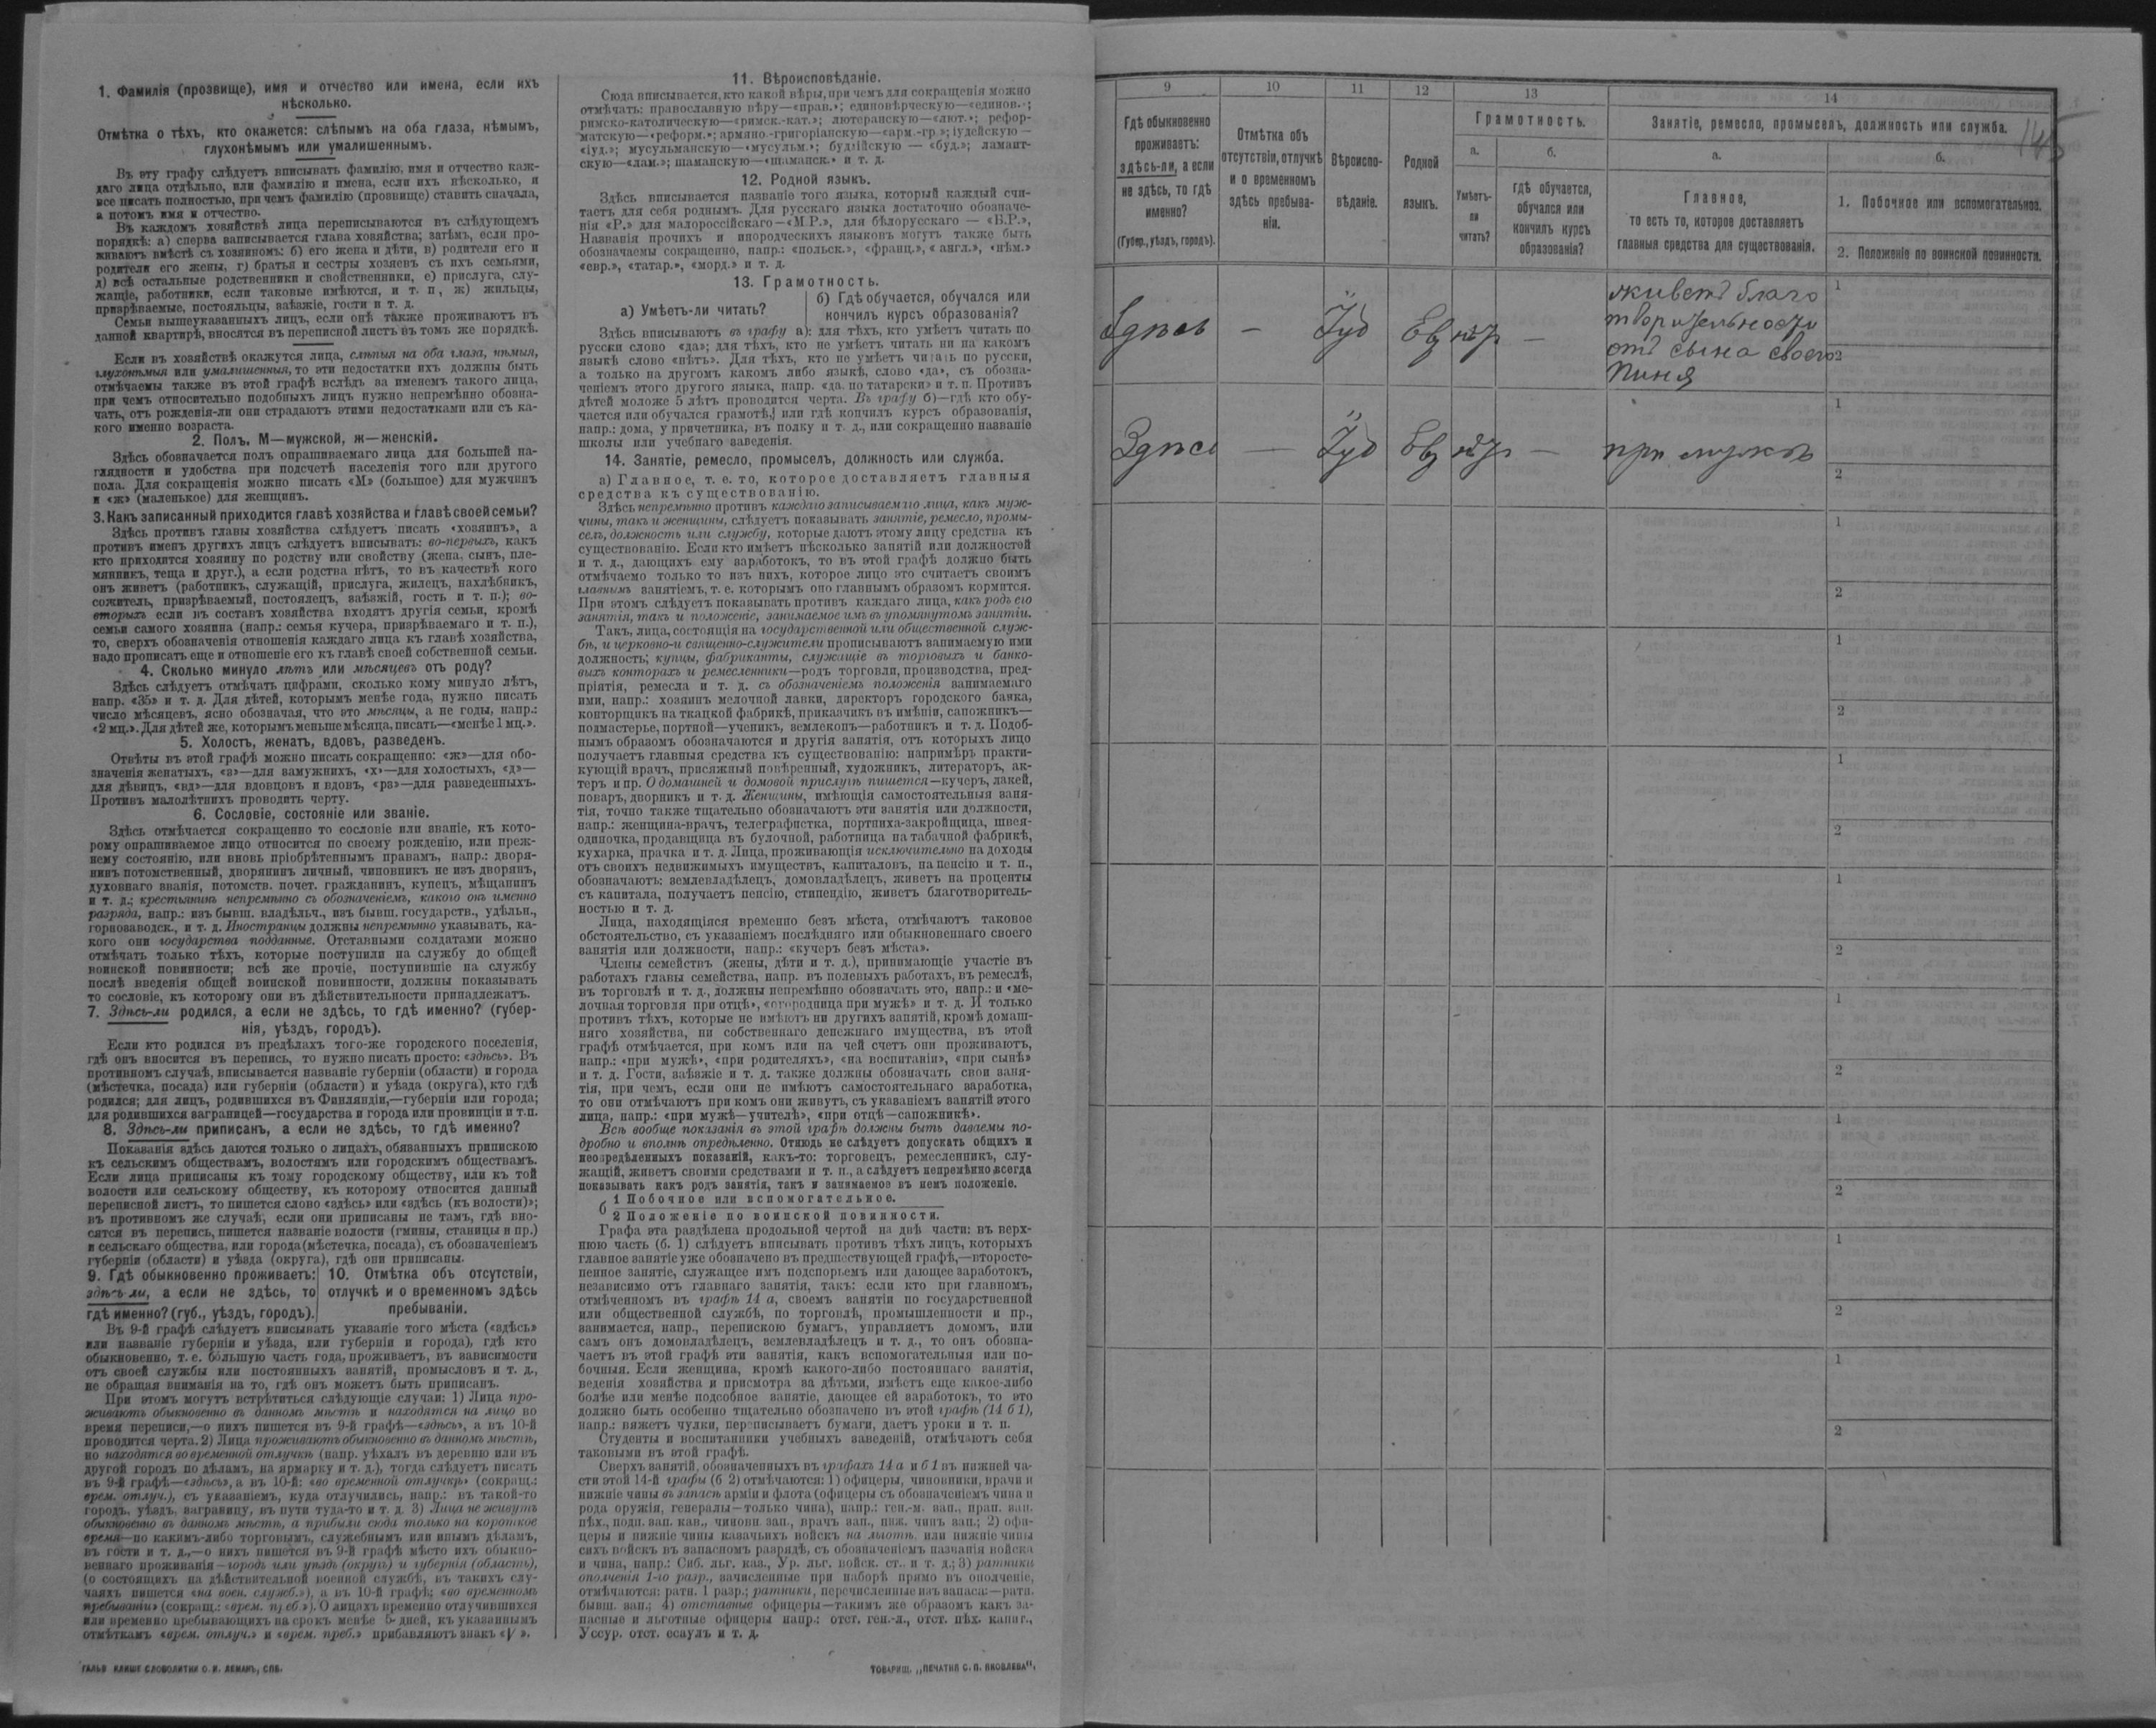 1. Фамилія (прозвище), имя и отчество или имена, если ихъ
нѣсколько.
Отмѣтка о тѣхъ, кто окажется: слѣпымъ на оба глаза, нѣмымъ,
глухонѣмымъ или умалишеннымъ.
Въ эту графу слѣдуетъ вписывать фамилію, имя и отчество каж-
даго лица отдѣльно, или фамилію и имена, если ихъ нѣсколько, и
все писать полностью, при чемъ фамилію (прозвище) ставить сначала,
а потомъ имя и отчество.
Въ каждомъ хозяйствѣ лица переписываются въ слѣдующемъ
порядкѣ: а) сперва записывается глава хозяйства; затѣмъ, если про-
живаютъ вмѣстѣ съ хозяиномъ: б) его жена и дѣти, в) родители его и
родители его жены, г) братья и сестры хозяевъ съ ихъ семьями,
д) всѣ остальные родственники и свойственники, е) прислуга, слу-
жащіе, работники, если таковые имѣются, и т. п, ж) жильцы,
призрѣваемые, постояльцы, заѣзжіе, гости и т. д.
Семьи вышеуказанныхъ лицъ, если онѣ также проживаютъ въ
данной квартирѣ, вносятся въ переписной листъ въ томъ же порядкѣ.
Если въ хозяйствѣ окажутся лица, слѣпыя на оба глаза, нѣмыя,
глухонѣмыя или умалишенныя, то эти недостатки ихъ должны быть
отмѣчаемы также въ этой графѣ вслѣдъ за именемъ такого лица,
при чемъ относительно подобныхъ лицъ нужно непремѣнно обозна-
чать, отъ рожденія-ли они страдаютъ этими недостатками или съ ка-
кого именно возраста.
2. Полъ. М—мужской, ж—женскій.
Здѣсь обозначается полъ опрашиваемаго лица для большей на-
глядности и удобства при подсчетѣ населенія того или другого
пола. Для сокращенія можно писать «М» (большое) для мужчинъ
и «ж» (маленькое) для женщинъ.
3. Какъ записанный приходится главѣ хозяйства и главѣ своей семьи?
Здѣсь противъ главы хозяйства слѣдуетъ писать «хозяинъ», а
противъ именъ другихъ лицъ слѣдуетъ вписывать: во-первыхъ, какъ
кто приходится хозяину по родству или свойству (жена, сынъ, пле-
мянникъ, теща и друг.), а если родства нѣтъ, то въ качествѣ кого
онъ живетъ (работникъ, служащій, прислуга, жилецъ, нахлѣбникъ,
сожитель, призрѣваемый, постоялецъ, заѣзжій, гость и т. п.); во-
вторыхъ если въ составъ хозяйства входятъ другія семьи, кромѣ
семьи самого хозяина (напр.: семья кучера, призрѣваемаго и т. п.),
то, сверхъ обозначенія отношенія каждаго лица къ главѣ хозяйства,
надо прописать еще и отношеніе его къ главѣ своей собственной семьи.
4. Сколько минуло лѣтъ или мѣсяцевъ отъ роду?
Здѣсь слѣдуетъ отмѣчать цифрами, сколько кому минуло лѣтъ,
напр. «35» и т. д. Для дѣтей, которымъ менѣе года, нужно писать
число мѣсяцевъ, ясно обозначая, что это мѣсяцы, а не годы, напр.:
«2 мц.». Для дѣтей же, которымъ меньше мѣсяца, писать—«менѣе 1 мц.».
5. Холостъ, женатъ, вдовъ, разведенъ.
Отвѣты въ этой графѣ можно писать сокращенно: «ж»—для обо-
значенія женатыхъ, «з»—для замужнихъ, «х»—для холостыхъ, «д»—
для дѣвицъ, «вд»—для вдовцовъ и вдовъ, «рз»—для разведенныхъ.
Противъ малолѣтнихъ проводить черту.
6. Сословіе, состояніе или званіе.
Здѣсь отмѣчается сокращенно то сословіе или званіе, къ кото-
рому опрашиваемое лицо относится по своему рожденію, или преж-
нему состоянію, или вновь пріобрѣтеннымъ правамъ, напр.: дворя-
нинъ потомственный, дворянинъ личный, чиновникъ не изъ дворянъ,
духовнаго званія, потомств. почет. гражданинъ, купецъ, мѣщанинъ
и т. д.; крестьянинъ непремѣнно съ обозначеніемъ, какого онъ именно
разряда, напр.: изъ бывш. владѣльч., изъ бывш. государств., удѣльн.,
горнозаводск., и т. д. Иностранцы должны непремѣнно указывать, ка-
кого они государства подданные. Отставными солдатами можно
отмѣчать только тѣхъ, которые поступили на службу до общей
воинской повинности; всѣ же прочіе, поступившіе на службу
послѣ введенія общей воинской повинности, должны показывать
то сословіе, къ которому они въ дѣйствительности принадлежатъ.
7. Здѣсь-ли родился, а если не здѣсь, то гдѣ именно? (губер-
нія, уѣздъ, городъ).
Если кто родился въ предѣлахъ того-же городского поселенія,
гдѣ онъ вносится въ перепись, то нужно писать просто: «здѣсь». Въ
противномъ случаѣ, вписывается названіе губерніи (области) и города
(мѣстечка, посада) или губерніи (области) и уѣзда (округа), кто гдѣ
родился; для лицъ, родившихся въ Финляндіи,—губерніи или города;
для родившихся заграницей—государства и города или провинціи и т.п.
8. Здѣсь-ли приписанъ, а если не здѣсь, то гдѣ именно?
Показанія здѣсь даются только о лицахъ, обязанныхъ припискою
къ сельскимъ обществамъ, волостямъ или городскимъ обществамъ.
Если лица приписаны къ тому городскому обществу, или къ той
волости или сельскому обществу, къ которому относится данный
переписной листъ, то пишется слово «здѣсь» или «здѣсь (къ волости)»;
въ противномъ же случаѣ, если они приписаны не тамъ, гдѣ вно-
сятся въ перепись, пишется названіе волости (гмины, станицы и пр.)
и сельскаго общества, или города (мѣстечка, посада), съ обозначеніемъ
губерніи (области) и уѣзда (округа), гдѣ они приписаны.
9. Гдѣ обыкновенно проживаетъ: здѣсь-ли, а если не здѣсь, то гдѣ именно? (губ., уѣздъ, городъ).
10. Отмѣтка объ отсутствіи, отлучкѣ и о временномъ здѣсь пребываніи.
Въ 9-й графѣ слѣдуетъ вписывать указаніе того мѣста («здѣсь»
или названіе губерніи и уѣзда, или губерніи и города), гдѣ кто
обыкновенно, т. е. бо́льшую часть года, проживаетъ, въ зависимости
отъ своей службы или постоянныхъ занятій, промысловъ и т. д.,
не обращая вниманія на то, гдѣ онъ можетъ быть приписанъ.
При этомъ могутъ встрѣтиться слѣдующіе случаи: 1) Лица про-
живаютъ обыкновенно въ данномъ мѣстѣ и находятся на лицо во
время переписи,—о нихъ пишется въ 9-й графѣ—«здѣсь», а въ 10-й
проводится черта. 2) Лица проживаютъ обыкновенно въ данномъ мѣстѣ,
но находятся во временной отлучкѣ (напр. уѣхалъ въ деревню или въ
другой городъ по дѣламъ, на ярмарку и т. д.), тогда слѣдуетъ писать
въ 9-й графѣ—«здѣсь», а въ 10-й: «во временной отлучкѣ» (сокращ.:
врем. отлуч.), съ указаніемъ, куда отлучились, напр.: въ такой-то
городъ, уѣздъ, заграницу, въ пути туда-то и т. д. 3) Лица не живутъ
обыкновенно въ данномъ мѣстѣ, а прибыли сюда только на короткое
время—по какимъ-либо торговымъ, служебнымъ или инымъ дѣламъ,
въ гости и т. д.,—о нихъ пишется въ 9-й графѣ мѣсто ихъ обыкно-
веннаго проживанія—городъ или уѣздъ (округъ) и губернія (область),
(о состоящихъ на дѣйствительной военной службѣ, въ такихъ слу-
чаяхъ пишется «на воен. служб.»), а въ 10-й графѣ: «во временномъ
пребываніи» (сокращ.: «врем. преб.»). О лицахъ временно отлучившихся
или временно пребывающихъ на срокъ менѣе 5 дней, къ указаннымъ
отмѣткамъ «врем. отлуч.» и «врем. преб.» прибавляютъ знакъ «V».
ГАЛЬВ КЛИШЕ СЛОВОЛИТНИ О. И. ЛЕМАНЪ, СПБ.
11. Вѣроисповѣданіе.
Сюда вписывается, кто какой вѣры, при чемъ для сокращенія можно
отмѣчать: православную вѣру—«прав.»; единовѣрческую—«единов.»;
римско-католическую—«римск.-кат.»; лютеранскую—«лют.»; рефор-
матскую—«реформ.»; армяно-григоріанскую—«арм.-гр.»; іудейскую —
«іуд.»; мусульманскую—«мусульм.»; буддійскую — «буд.»; ламаит-
скую—«лам.»; шаманскую—«шаманск.» и т. д.
12. Родной языкъ.
Здѣсь вписывается названіе того языка, который каждый счи-
таетъ для себя роднымъ. Для русскаго языка достаточно обозначе-
нія «Р.» для малороссійскаго—«М.Р.», для бѣлорусскаго — «Б.Р.»,
Названія прочихъ и инородческихъ языковъ могутъ также быть
обозначаемы сокращенно, напр.: «польск.», «франц.», «англ.», «нѣм.»
«евр.», «татар.», «морд.» и т. д.
13. Грамотность.
а) Умѣетъ-ли читать?
б) Гдѣ обучается, обучался или
кончилъ курсъ образованія?
Здѣсь вписываютъ въ графу а): для тѣхъ, кто умѣетъ читать по
русски слово «да»; для тѣхъ, кто не умѣетъ читать ни на какомъ
языкѣ слово «нѣтъ». Для тѣхъ, кто не умѣетъ читать по русски,
а только на другомъ какомъ либо языкѣ, слово «да», съ обозна-
ченіемъ этого другого языка, напр. «да. по татарски» и т. п. Противъ
дѣтей моложе 5 лѣтъ проводится черта. Въ графу б)—гдѣ кто обу-
чается или обучался грамотѣ, или гдѣ кончилъ курсъ образованія,
напр.: дома, у причетника, въ полку и т. д., или сокращенно названіе
школы или учебнаго заведенія.
14. Занятіе, ремесло, промыселъ, должность или служба.
а) Главное, т. е. то, которое доставляетъ главныя
средства къ существованію.
Здѣсь непремѣнно противъ каждаго записываемаго лица, какъ муж-
чины, такъ и женщины, слѣдуетъ показывать занятіе, ремесло, промы-
селъ, должность или службу, которые даютъ этому лицу средства къ
существованію. Если кто имѣетъ нѣсколько занятій или должностей
и т. д., дающихъ ему заработокъ, то въ этой графѣ должно быть
отмѣчаемо только то изъ нихъ, которое лицо это считаетъ своимъ
главнымъ занятіемъ, т. е. которымъ оно главнымъ образомъ кормится.
При этомъ слѣдуетъ показывать противъ каждаго лица, какъ родъ его
занятія, такъ и положеніе, занимаемое имъ въ упомянутомъ занятіи.
Такъ, лица, состоящія на государственной или общественной служ-
бѣ, и церковно-и священно-служители прописываютъ занимаемую ими
должность; купцы, фабриканты, служащіе въ торговыхъ и банко-
выхъ конторахъ и ремесленники—родъ торговли, производства, пред-
пріятія, ремесла и т. д. съ обозначеніемъ положенія занимаемаго
ими, напр.: хозяинъ мелочной лавки, директоръ городского банка,
конторщикъ на ткацкой фабрикѣ, приказчикъ въ имѣніи, сапожникъ—
подмастерье, портной—ученикъ, землекопъ—работникъ и т. д. Подоб-
нымъ образомъ обозначаются и другія занятія, отъ которыхъ лицо
получаетъ главныя средства къ существованію: напримѣръ практи-
кующій врачъ, присяжный повѣренный, художникъ, литераторъ, ак-
теръ и пр. О домашней и домовой прислугѣ пишется—кучеръ, лакей,
поваръ, дворникъ и т. д. Женщины, имѣющія самостоятельныя заня-
тія, точно также тщательно обозначаютъ эти занятія или должности,
напр.: женщина-врачъ, телеграфистка, портниха-закройщица, швея-
одиночка, продавщица въ булочной, работница на табачной фабрикѣ,
кухарка, прачка и т. д. Лица, проживающія исключительно на доходы
отъ своихъ недвижимыхъ имуществъ, капиталовъ, на пенсію и т. п.,
обозначаютъ: землевладѣлецъ, домовладѣлецъ, живетъ на проценты
съ капитала, получаетъ пенсію, стипендію, живетъ благотворитель-
ностью и т. д.
Лица, находящіяся временно безъ мѣста, отмѣчаютъ таковое
обстоятельство, съ указаніемъ послѣдняго или обыкновеннаго своего
занятія или должности, напр.: «кучеръ безъ мѣста».
Члены семействъ (жены, дѣти и т. д.), принимающіе участіе въ
работахъ главы семейства, напр. въ полевыхъ работахъ, въ ремеслѣ,
въ торговлѣ и т. д., должны непремѣнно обозначать это, напр.: и «ме-
лочная торговля при отцѣ», «огородница при мужѣ» и т. д. И только
противъ тѣхъ, которые не имѣютъ ни другихъ занятій, кромѣ домаш-
няго хозяйства, ни собственнаго денежнаго имущества, въ этой
графѣ отмѣчается, при комъ или на чей счетъ они проживаютъ,
напр.: «при мужѣ», «при родителяхъ», «на воспитаніи», «при сынѣ»
и т. д. Гости, заѣзжіе и т. д. также должны обозначать свои заня-
тія, при чемъ, если они не имѣютъ самостоятельнаго заработка,
то они отмѣчаютъ при комъ они живутъ, съ указаніемъ занятій этого
лица, напр.: «при мужѣ—учителѣ», «при отцѣ—сапожникѣ».
Всѣ вообще показанія въ этой графѣ должны быть даваемы по-
дробно и вполнѣ опредѣленно. Отнюдь не слѣдуетъ допускать общихъ и
неопредѣленныхъ показаній, какъ-то: торговецъ, ремесленникъ, слу-
жащій, живетъ своими средствами и т. п., а слѣдуетъ непремѣнно всегда
показывать какъ родъ занятія, такъ и занимаемое въ немъ положеніе.
б
1 Побочное или вспомогательное.
2 Положеніе по воинской повинности.
Графа эта раздѣлена продольной чертой на двѣ части: въ верх-
нюю часть (б. 1) слѣдуетъ вписывать противъ тѣхъ лицъ, которыхъ
главное занятіе уже обозначено въ предшествующей графѣ,—второсте-
пенное занятіе, служащее имъ подспорьемъ или дающее заработокъ,
независимо отъ главнаго занятія, такъ: если кто при главномъ,
отмѣченномъ въ графѣ 14 а, своемъ занятіи по государственной
или общественной службѣ, по торговлѣ, промышленности и пр.,
занимается, напр., перепискою бумагъ, управляетъ домомъ, или
самъ онъ домовладѣлецъ, землевладѣлецъ и т. д., то онъ обозна-
чаетъ въ этой графѣ эти занятія, какъ вспомогательныя или по-
бочныя. Если женщина, кромѣ какого-либо постояннаго занятія,
веденія хозяйства и присмотра за дѣтьми, имѣетъ еще какое-либо
болѣе или менѣе подсобное занятіе, дающее ей заработокъ, то это
должно быть особенно тщательно обозначено въ этой графѣ (14 б 1),
напр.: вяжетъ чулки, переписываетъ бумаги, даетъ уроки и т. п.
Студенты и воспитанники учебныхъ заведеній, отмѣчаютъ себя
таковыми въ этой графѣ.
Сверхъ занятій, обозначенныхъ въ графахъ 14 а и б 1 въ нижней ча-
сти этой 14-й графы (б 2) отмѣчаются: 1) офицеры, чиновники, врачи и
нижніе чины въ запасѣ арміи и флота (офицеры съ обозначеніемъ чина и
рода оружія, генералы—только чина), напр.: ген.-м. зап., прап. зап.
пѣх., подп. зап. кав., чиновн. зап., врачъ зап., ниж. чинъ зап.; 2) офи-
церы и нижніе чины казачьихъ войскъ на льготѣ, или нижніе чины
сихъ войскъ въ запасномъ разрядѣ, съ обозначеніемъ названія войска
и чина, напр.: Сиб. льг. каз., Ур. льг. войск. ст.. и т. д.; 3) ратники
ополченія 1-го разр., зачисленные при наборѣ прямо въ ополченіе,
отмѣчаются: ратн. 1 разр.; ратники, перечисленные изъ запаса:—ратн.
бывш. зап.; 4) отставные офицеры—такимъ же образомъ какъ за-
пасные и льготные офицеры напр.: отст. ген.-л., отст. пѣх. капит.,
Уссур. отст. есаулъ и т. д.
ТОВАРИЩ. „ПЕЧАТНЯ С. П. ЯКОВЛЕВА“.
9 10 11 12 13 14
145
Гдѣ обыкновенно проживаетъ: здѣсь-ли, а если не здѣсь, то гдѣ именно? (Губер., уѣздъ, городъ).
Отмѣтка объ отсутствіи, отлучкѣ и о временномъ здѣсь пребыва-ніи.
Вѣроиспо-вѣданіе.
Родной языкъ.
Грамотность.
а.
Умѣетъ-ли читать?
б.
гдѣ обучается, обучался или кончилъ курсъ образованія?
Занятіе, ремесло, промыселъ, должность или служба.
а.
Главное,
то есть то, которое доставляетъ
главныя средства для существованія.
б.
1. Побочное или вспомогательное.
2. Положеніе по воинской повинности.
Здѣсь — Іуд Ев нѣтъ —
живетъ благо
творительности
отъ сына своего
Пиня
1
2
Здѣсь — Іуд Ев нѣтъ — при мужѣ
1
2
1
2
1
2
1
2
1
2
1
2
1
2
1
2
1
2